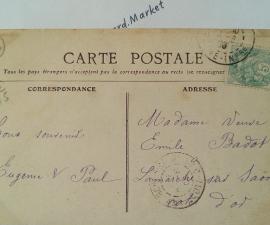 ard.Market
CARTE POSTALE
Tous les pays étrangers n'acceptent pas la correspondance au recto (se renseigner
CORRESPONDANCE
ADRESSE
Bons souvenirs
Eugénie & Paul
Madame Veuve
Emile Badot
Lamarche sur Saône
Côte d'or